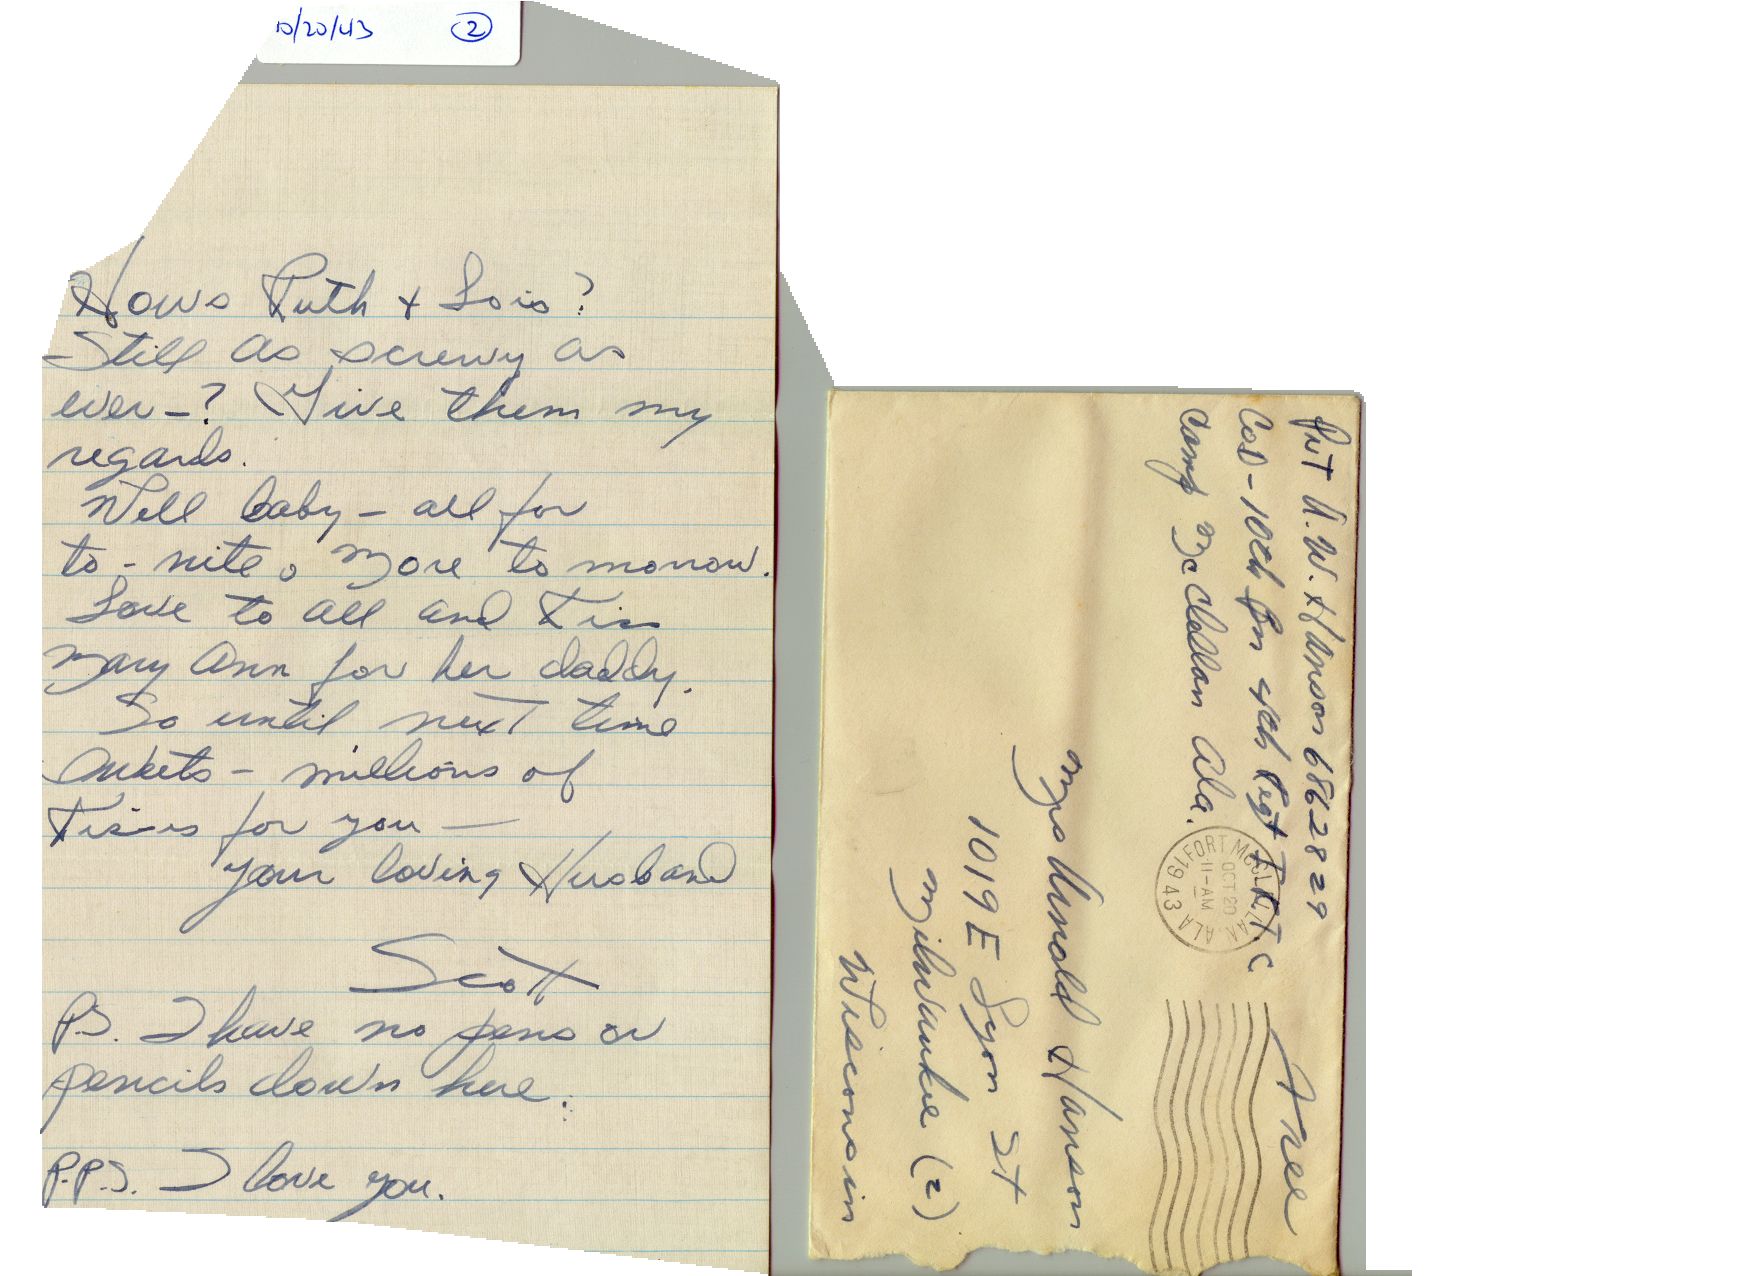 10/20/43 2
Hows Ruth + Lois?
Still as screwy as
ever-? Give them my
regards.
Well baby - all for
to-nite. More to morrow.
Love to all and Kiss
Mary Ann for her daddy.
So until next time
millions of
Kisses for you —
your loving Husband
Scott
P.S. I have no pens or
pencils down here.
P.P.S. I love you.
Pvt A.W. Hanson 6862829
Co D - 10th Bn 4th Regt I.R.T.C
Camp McClellan Ala.
Free
FORT MCCLELLAN, ALA
OCT 20
11-AM
1943
Mrs Arnold Hanson
1019 E Lyon St
Milwaukee (2)
Wisconsin